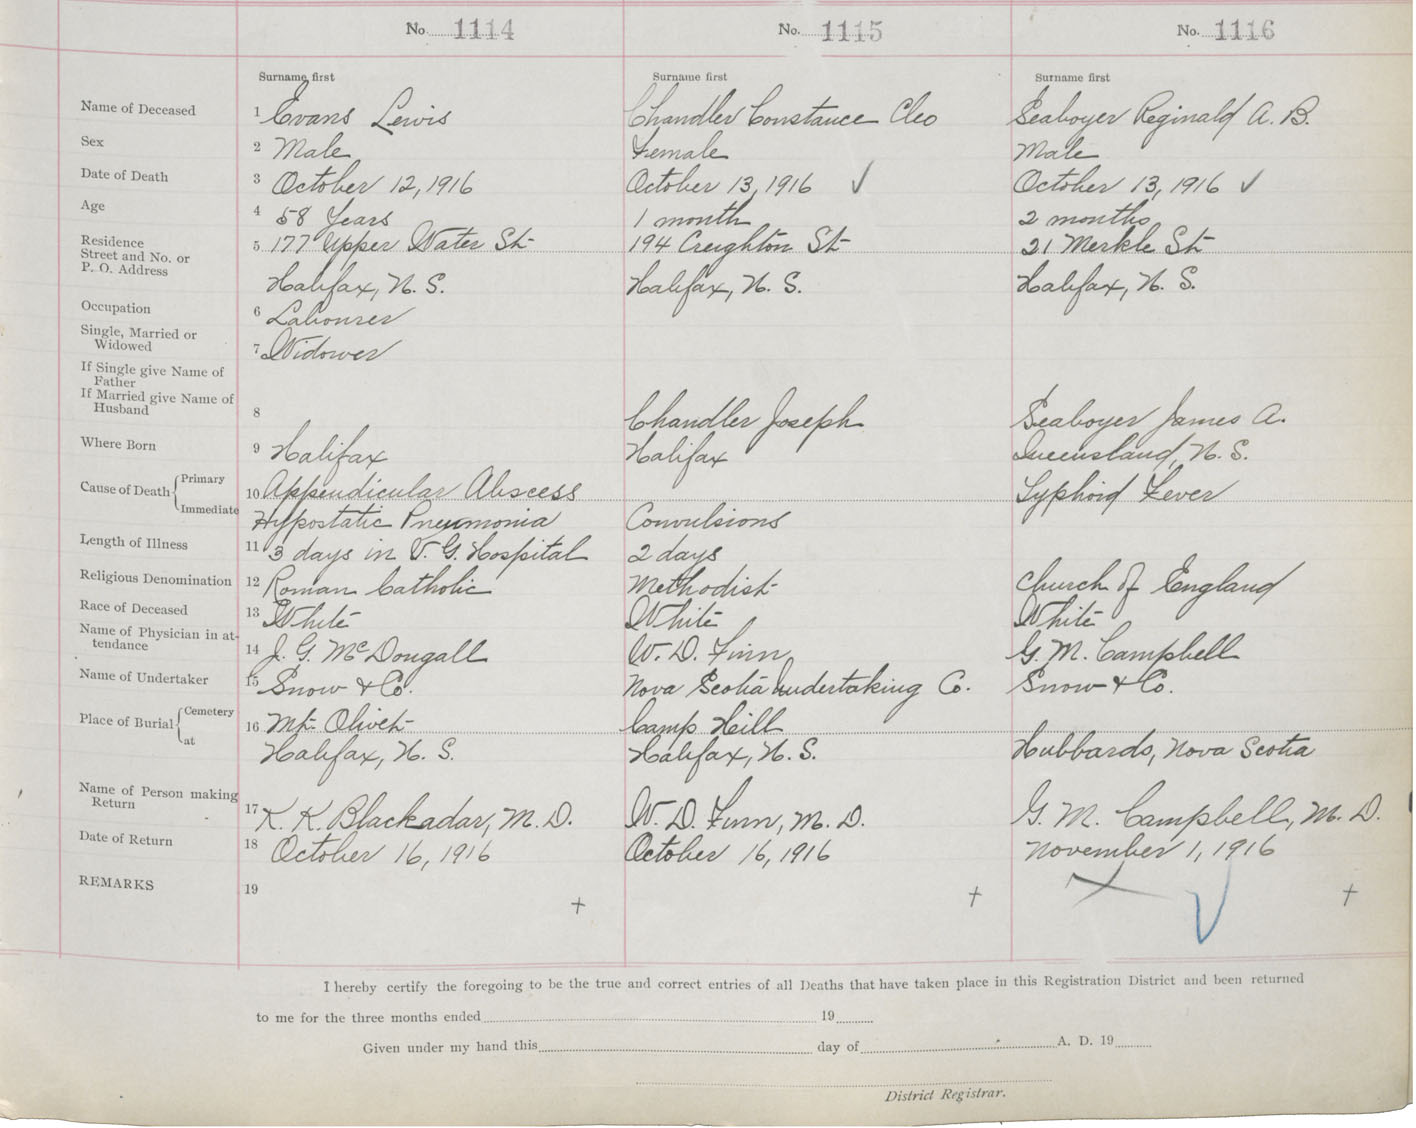 No. 1114 No. 1115 No. 1116
Surname first Surname first Surname first
Name of Deceased 1 Evans Lewis Chandler Constance Cleo Seaboyer Reginald A. B.
Sex 2 Male Female Male
Date of Death 3 October 12, 1916 October 13, 1916 ✓ October 13, 1916 ✓
Age 4 58 Years 1 month 2 months
Residence
Street and No. or 5 177 Upper Water St 194 Creighton St 21 Merkle St
P. O. Address Halifax, N. S. Halifax, N. S. Halifax, N. S.
Occupation 6 Labourer
Single, Married or
Widowed 7 Widower
If Single give Name of
Father
If Married give Name of
Husband 8 Chandler Joseph Seaboyer James A.
Where Born 9 Halifax Halifax Queensland, N. S.
Cause of Death Primary 10 Appendicular Abscess Typhoid Fever
Immediate Hypostatic Pneumonia Convulsions
Length of Illness 11 3 days in V. G. Hospital 2 days
Religious Denomination 12 Roman Catholic Methodist Church of England
Race of Deceased 13 White White White
Name of Physician in at-
tendance 14 J. G. McDougall W. D. Finn G. M. Campbell
Name of Undertaker 15 Snow & Co. Nova Scotia Undertaking Co. Snow & Co.
Place of Burial Cemetery 16 Mt. Olivet Camp Hill
at Halifax, N. S. Halifax, N. S. Hubbards, Nova Scotia
Name of Person making
Return 17 K. K. Blackadar, M. D. W. D. Finn, M. D. G. M. Campbell, M. D.
Date of Return 18 October 16, 1916 October 16, 1916 November 1, 1916
REMARKS 19
I hereby certify the foregoing to be the true and correct entries of all Deaths that have taken place in this Registration District and been returned
to me for the three months ended 19
Given under my hand this day of A. D. 19
District Registrar.